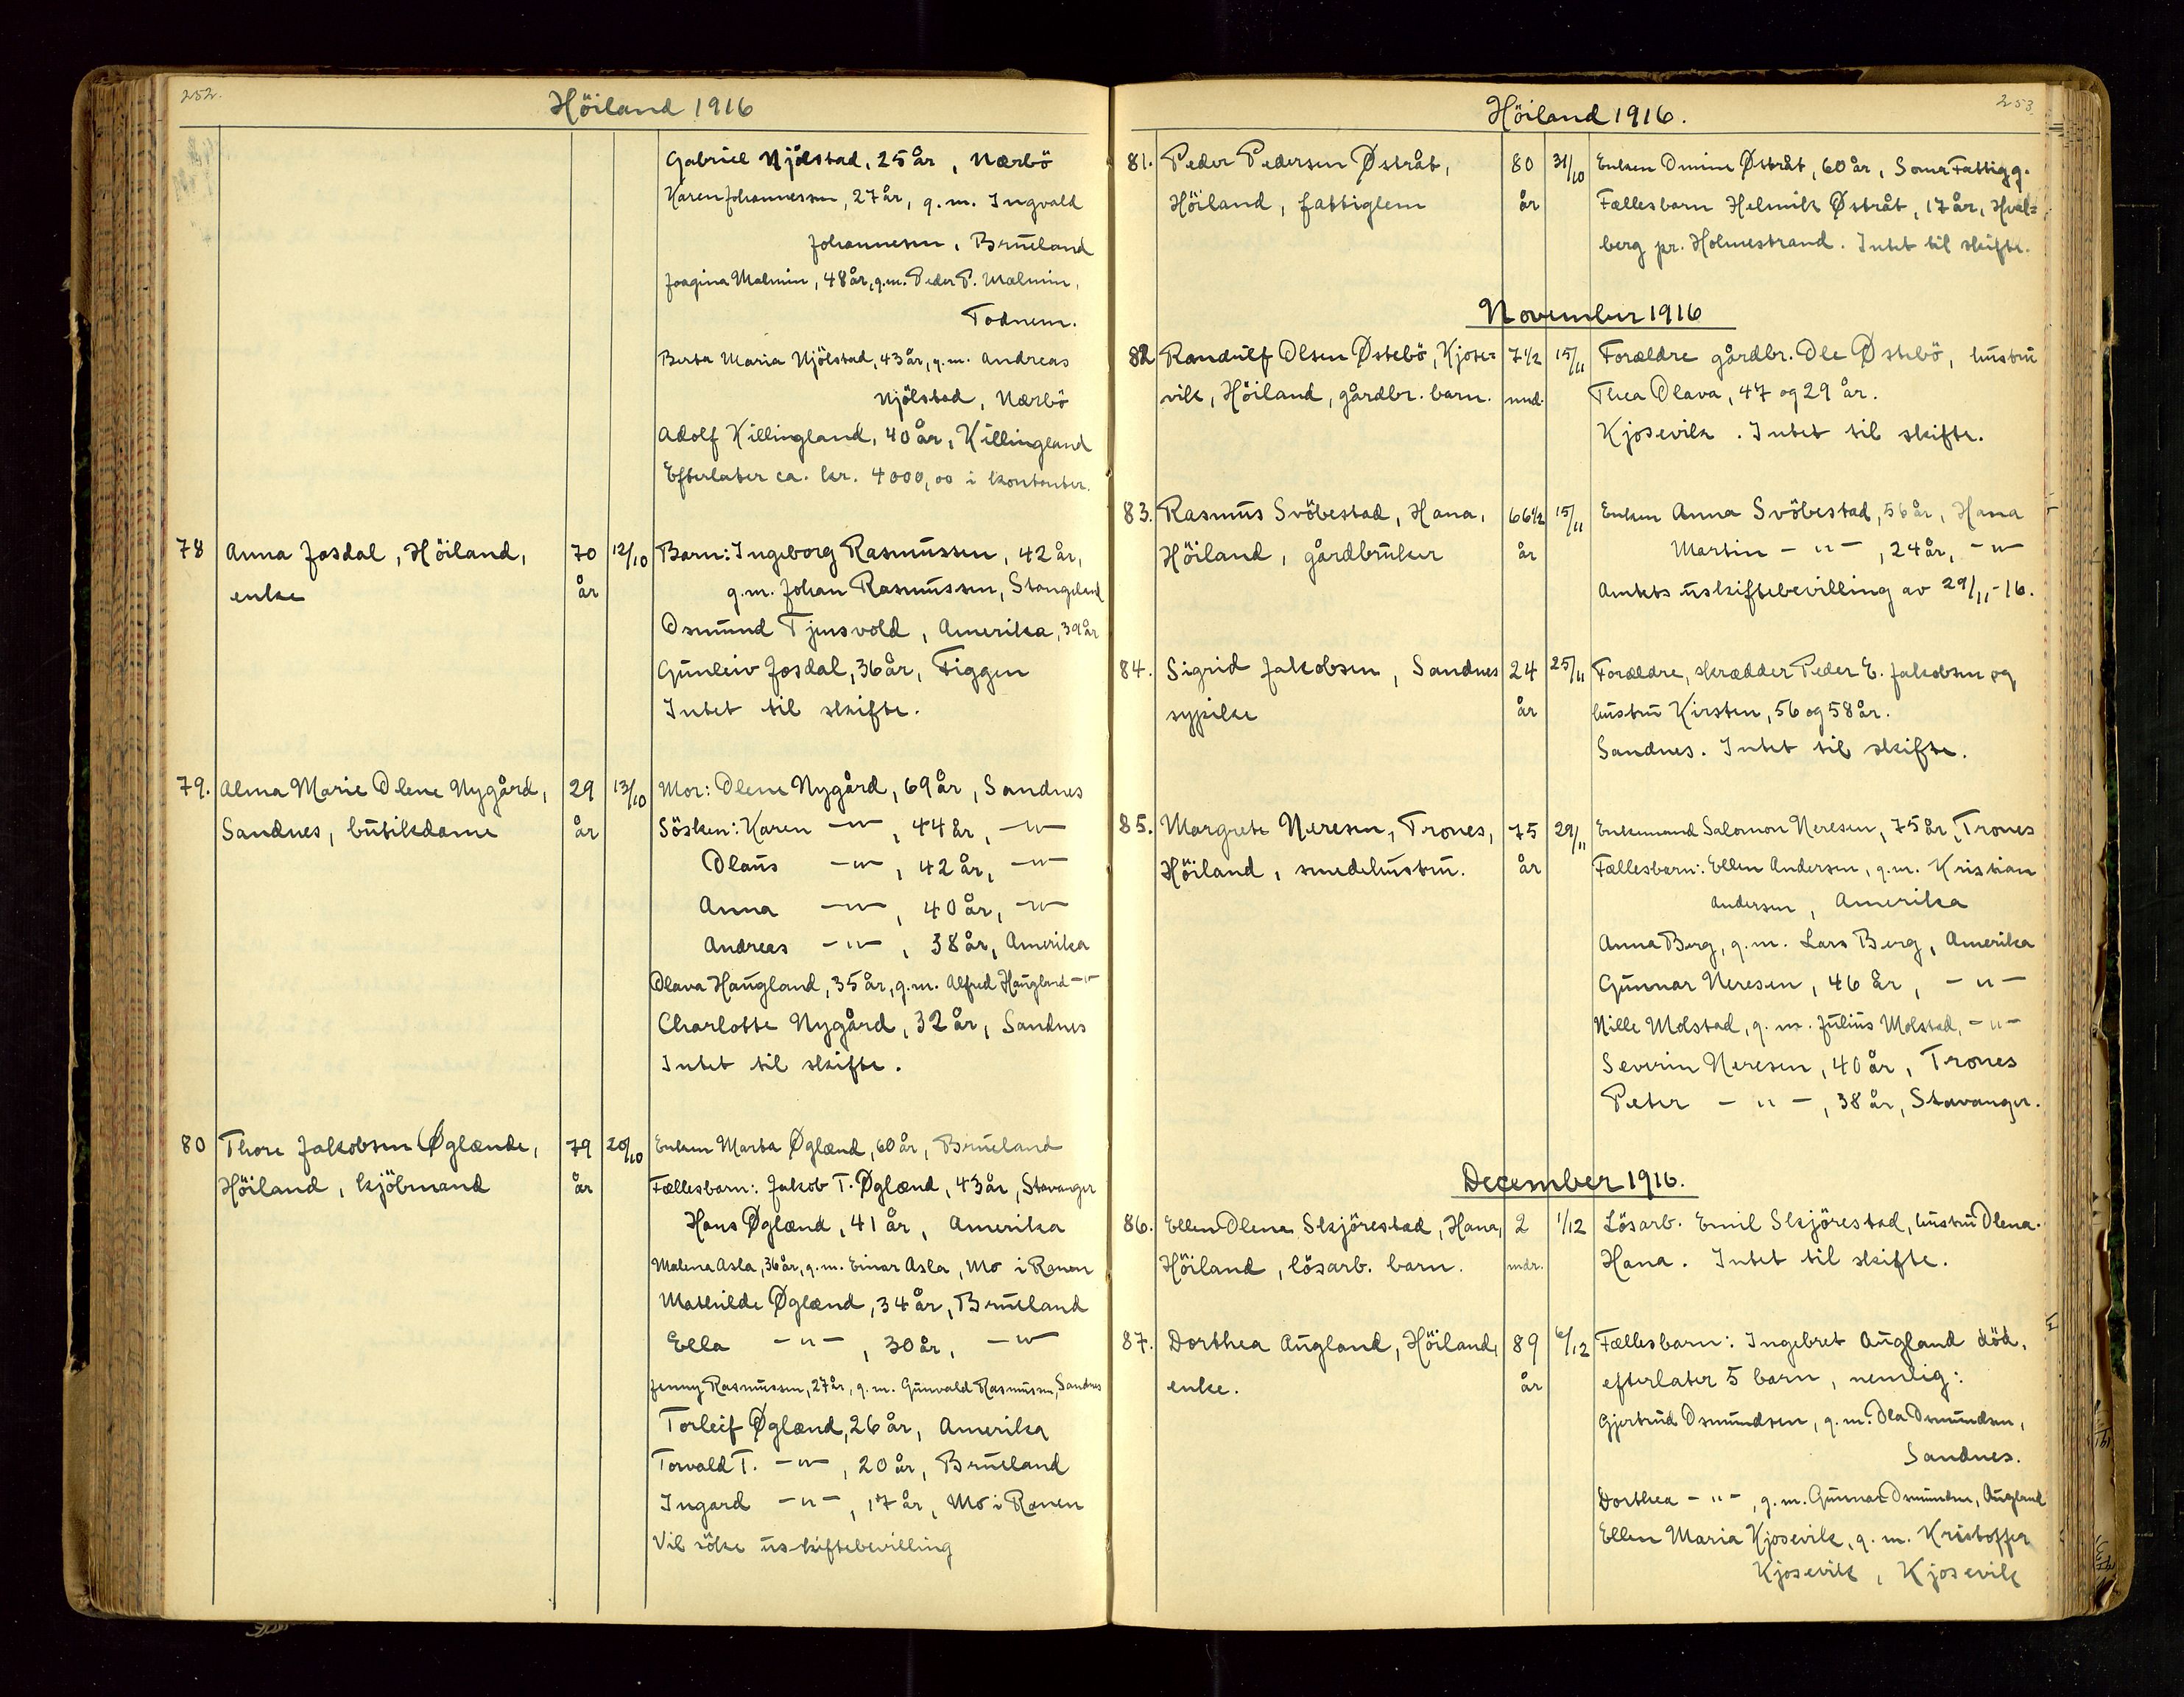 252.
Höiland 1916
Gabriel Njölstad, 25 år, Nærbö
Karen Johannessen, 27 år, g.m. Ingvald
Johannesen, Brueland
Joagina Malmin, 48 år, g.m. Peder P. Malmin,
Todnem.
Berta Maria Njölstad, 43 år, g.m. Andreas
Njölstad, Nærbö
Adolf Killingland, 40 år, Killingland
Efterlater ca. kr. 4000,00 i kontanter.
78 Anna Josdal, Höiland, 70 12/10 Barn: Ingeborg Rasmussen, 42 år,
enke år g.m. Johan Rasmussen, Stangeland
Osmund Tjensvold, Amerika, 39 år
Gunleiv Josdal, 36 år, Figgen
Intet til skifte.
79. Alma Marie Olene Nygård, 29 13/10 Mor: Olene Nygård, 69 år, Sandnes
Sandnes, butikdame år Sösken: Karen -"-, 44 år, -"-
Olaus -"-, 42 år, -"-
Anna -"-, 40 år, -"-
Andreas -"-, 38 år, Amerika
Olava Haugland, 35 år, g.m. Alfred Haugland -"-
Charlotte Nygård, 32 år, Sandnes
Intet til skifte.
80 Thore Jakobsen Øglænde, 79 20/10 Enken Marta Øglænd, 60 år, Brueland
Höiland, kjöbmand år Fællesbarn: Jakob T. Øglænd, 43 år, Stavanger
Hans Øglænd, 41 år, Amerika
Malena Asla, 36 år, g.m. Einar Asla, Mo i Ranen
Mathilde Øglænd, 34 år, Brueland
Ella -"-, 30 år, -"-
Jenny Rasmussen, 27 år, g.m. Gunvald Rasmussen, Sandnes
Torleif Øglænd, 26 år, Amerika
Torvald T. -"-, 20 år, Brueland
Ingard -"-, 17 år, Mo i Ranen
Vil söke uskiftebevilling
253
Höiland 1916.
81. Peder Pedersen Østråt, 80 31/10 Enken Omine Østråt, 60 år, Soma Fattigg.
Höiland, fattiglem år Fællesbarn Helmik Østråt, 17 år, Hvel=
berg pr. Holmestrand. Intet til skifte.
November 1916
82 Randulf Olsen Østebö, Kjose= 7 1/2 15/11 Forældre gårdbr. Ole Østebö, hustru
vik, Höiland, gårdbr. barn. mnd. Thea Olava, 47 og 29 år.
Kjosevik. Intet til skifte.
83. Rasmus Svöbestad, Hana, 66 1/2 15/11 Enken Anna Svöbestad, 56 år, Hana
Höiland, gårdbruker år Martin -"-, 24 år, -"-
Amtets uskiftebevilling av 29/11-16.
84. Sigrid Jakobsen, Sandnes 24 25/11 Forældre, skrædder Peder E. Jakobsen og
sypike år hustru Kirsten, 56 og 58 år.
Sandnes. Intet til skifte.
85. Margrete Neresen, Trones, 75 29/11 Enkemand Salomon Neresen, 75 år, Trones
Höiland, smedehustru. år Fællesbarn: Ellen Andersen, g.m. Kristian
Andersen, Amerika
Anna Berg, g.m. Lars Berg, Amerika
Gunnar Neresen, 46 år, -"-
Nille Molstad, g.m. Julius Molstad, -"-
Severin Neresen, 40 år, Trones
Peter -"-, 38 år, Stavanger.
December 1916.
86. Ellen Olena Skjörestad, Hana, 2 1/12 Lösarb. Emil Skjörestad, hustru Olena.
Höiland, lösarb. barn. mdr. Hana. Intet til skifte.
87. Dorthea Augland, Höiland, 89 6/12 Fællesbarn: Ingebret Augland död,
enke. år efterlater 5 barn, nemlig:
Gjertrud Osmundsen, g.m. Ola Osmundsen,
Sandnes.
Dorthea -"-, g.m. Gunnar Osmundsen, Augland
Ellen Maria Kjosevik, g.m. Kristoffer
Kjosevik, Kjosevik